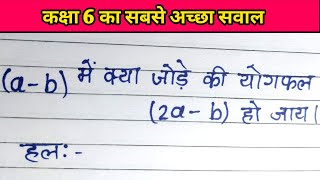 कक्षा 6 का सबसे अच्छा सवाल
(a-b) में क्या जोड़े की योगफल
(2a-b) हो जाय।
हल:-